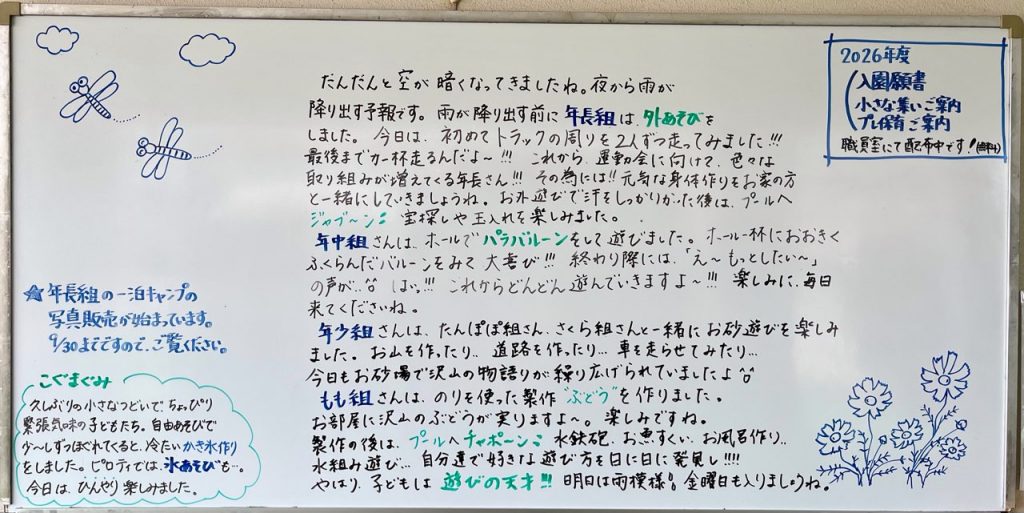 だんだんと空が暗くなってきましたね。夜から雨が
降り出す予報です。雨が降り出す前に年長組は、外あそびを
しました。今日は、初めてトラックの周りを2人ずつ走ってみました!!!
最後まで力一杯走るんだよ〜!!! これから、運動会に向けて、色々な
取り組みが増えてくる年長さん!!! その為には!!元気な身体作りをお家の方
と一緒にしていきましょうね。お外遊びで汗をしっかりかいた後は、プールへ
ジャブ〜ン 宝探しや玉入れを楽しみました。
年中組さんは、ホールでパラバルーンをして遊びました。ホール一杯におおきく
ふくらんだバルーンをみて大喜び!!! 終わり際には、「え〜もっとしたい〜」
の声が… はいっ!!! これからどんどん遊んでいきますよ〜!!! 楽しみに、毎日
来てくださいね。
年少組さんは、たんぽぽ組さん、さくら組さんと一緒にお砂遊びを楽しみ
ました。お山を作ったり… 道路を作ったり… 車を走らせてみたり…
今日もお砂場で沢山の物語りが繰り広げられていましたよ
もも組さんは、のりを使った製作"ぶどう"を作りました。
お部屋に沢山のぶどうが実りますよ〜。楽しみですね。
製作の後は、プールへチャポーン 水鉄砲、お魚すくい、お風呂作り…
水組み遊び… 自分達で好きな遊び方を日に日に発見し!!!!
やはり、子どもは遊びの天才!!! 明日は雨模様 金曜日も入りましょうね。
2026年度
入園願書
小さな集いご案内
プレ保育ご案内
職員室にて配布中です!(無料)
☆年長組の一泊キャンプの
写真販売が始まっています。
9/30までですので、ご覧ください。
こぐまぐみ
久しぶりの小さなつどいで、ちょっぴり
緊張気味の子どもたち。自由あそびで
少〜しずつほぐれてくると、冷たいかき氷作り
をしました。ピロティでは、氷あそびも…。
今日は、ひんやり楽しみました。